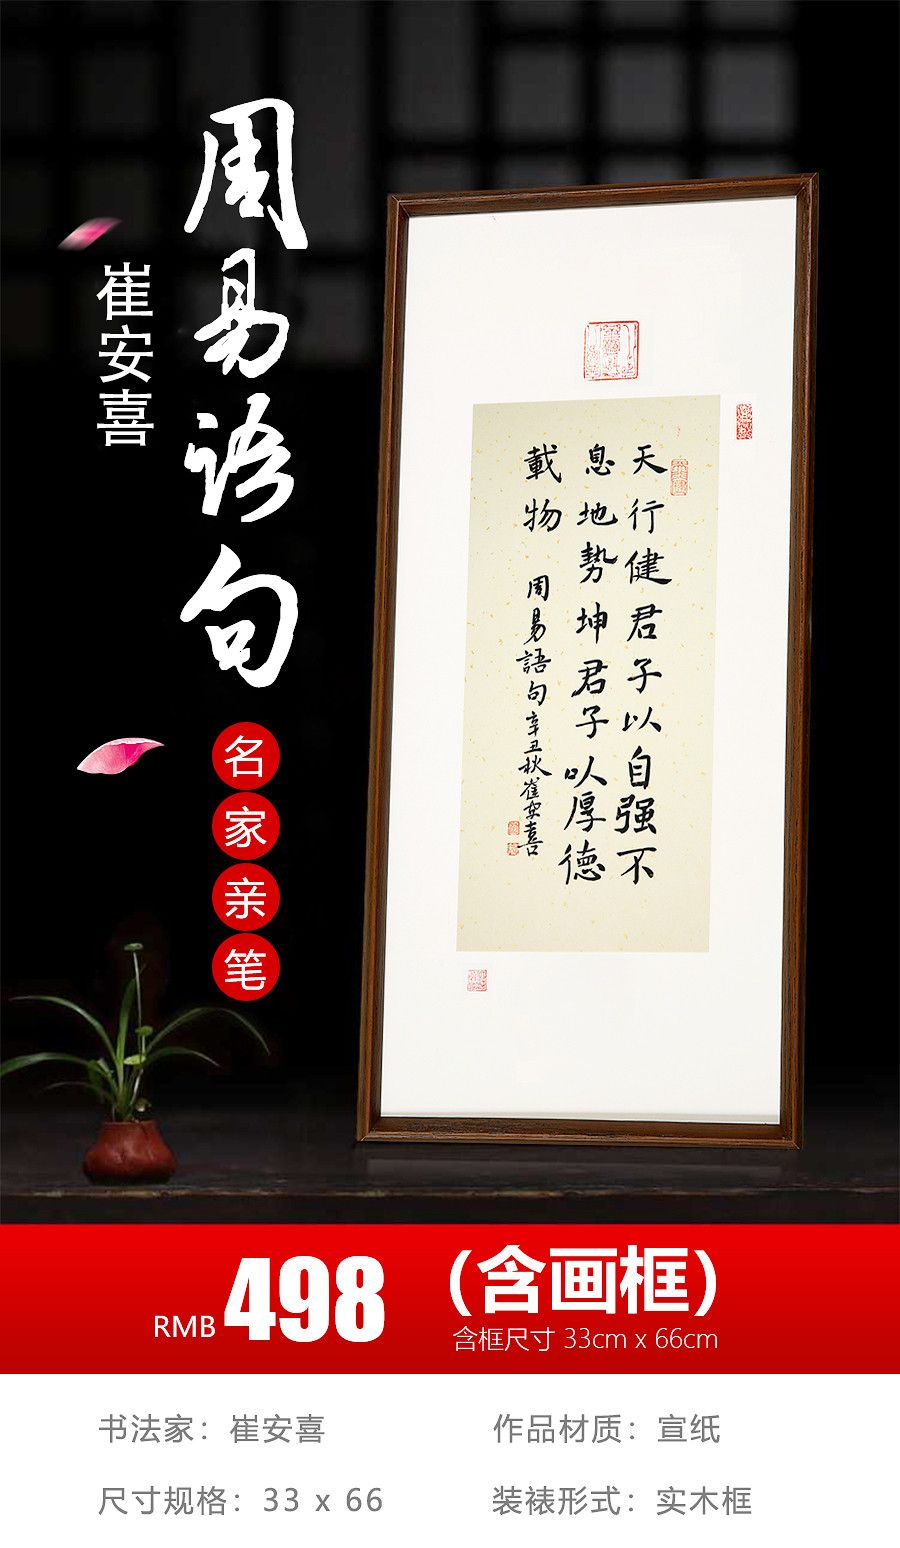 周易语句
崔安喜
名家亲笔
天行健君子以自强不
息地勢坤君子以厚德
載物
周易語句辛丑秋崔安喜
RMB 498 （含画框）
含框尺寸 33cm x 66cm
书法家：崔安喜
作品材质：宣纸
尺寸规格：33 x 66
装裱形式：实木框